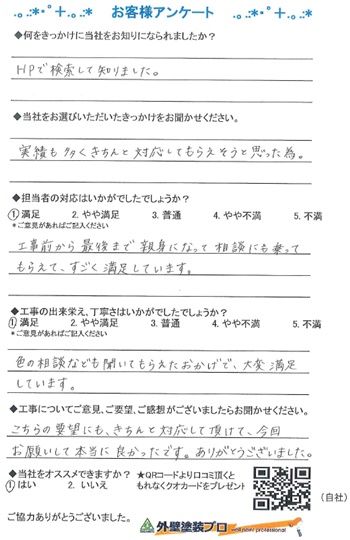 .。.:*・゜+.。.:* お客様アンケート .。.:*・゜+.。.:*
◆何をきっかけに当社をお知りになられましたか?
HPで検索して知りました。
◆当社をお選びいただいたきっかけをお聞かせください。
実績も多くきちんと対応してもらえそうと思った為。
◆担当者の対応はいかがでしたでしょうか?
①満足 2. やや満足 3. 普通 4. やや不満 5. 不満
*ご意見があればご記入ください
工事前から最後まで親身になって相談にも乗って
もらえて、すごく満足しています。
◆工事の出来栄え、丁寧さはいかがでしたでしょうか?
①満足 2. やや満足 3. 普通 4. やや不満 5. 不満
*ご意見があればご記入ください
色の相談なども聞いてもらえたおかげで、大変満足
しています。
◆工事についてご意見、ご要望、ご感想がございましたらお聞かせください。
こちらの要望にも、きちんと対応して頂けて、今回
お願いして本当に良かったです。ありがとうございました。
◆当社をオススメできますか? ★QRコードより口コミ頂くと
①はい 2. いいえ もれなくクオカードをプレゼント
(自社)
ご協力ありがとうございました。
外壁塗装プロ